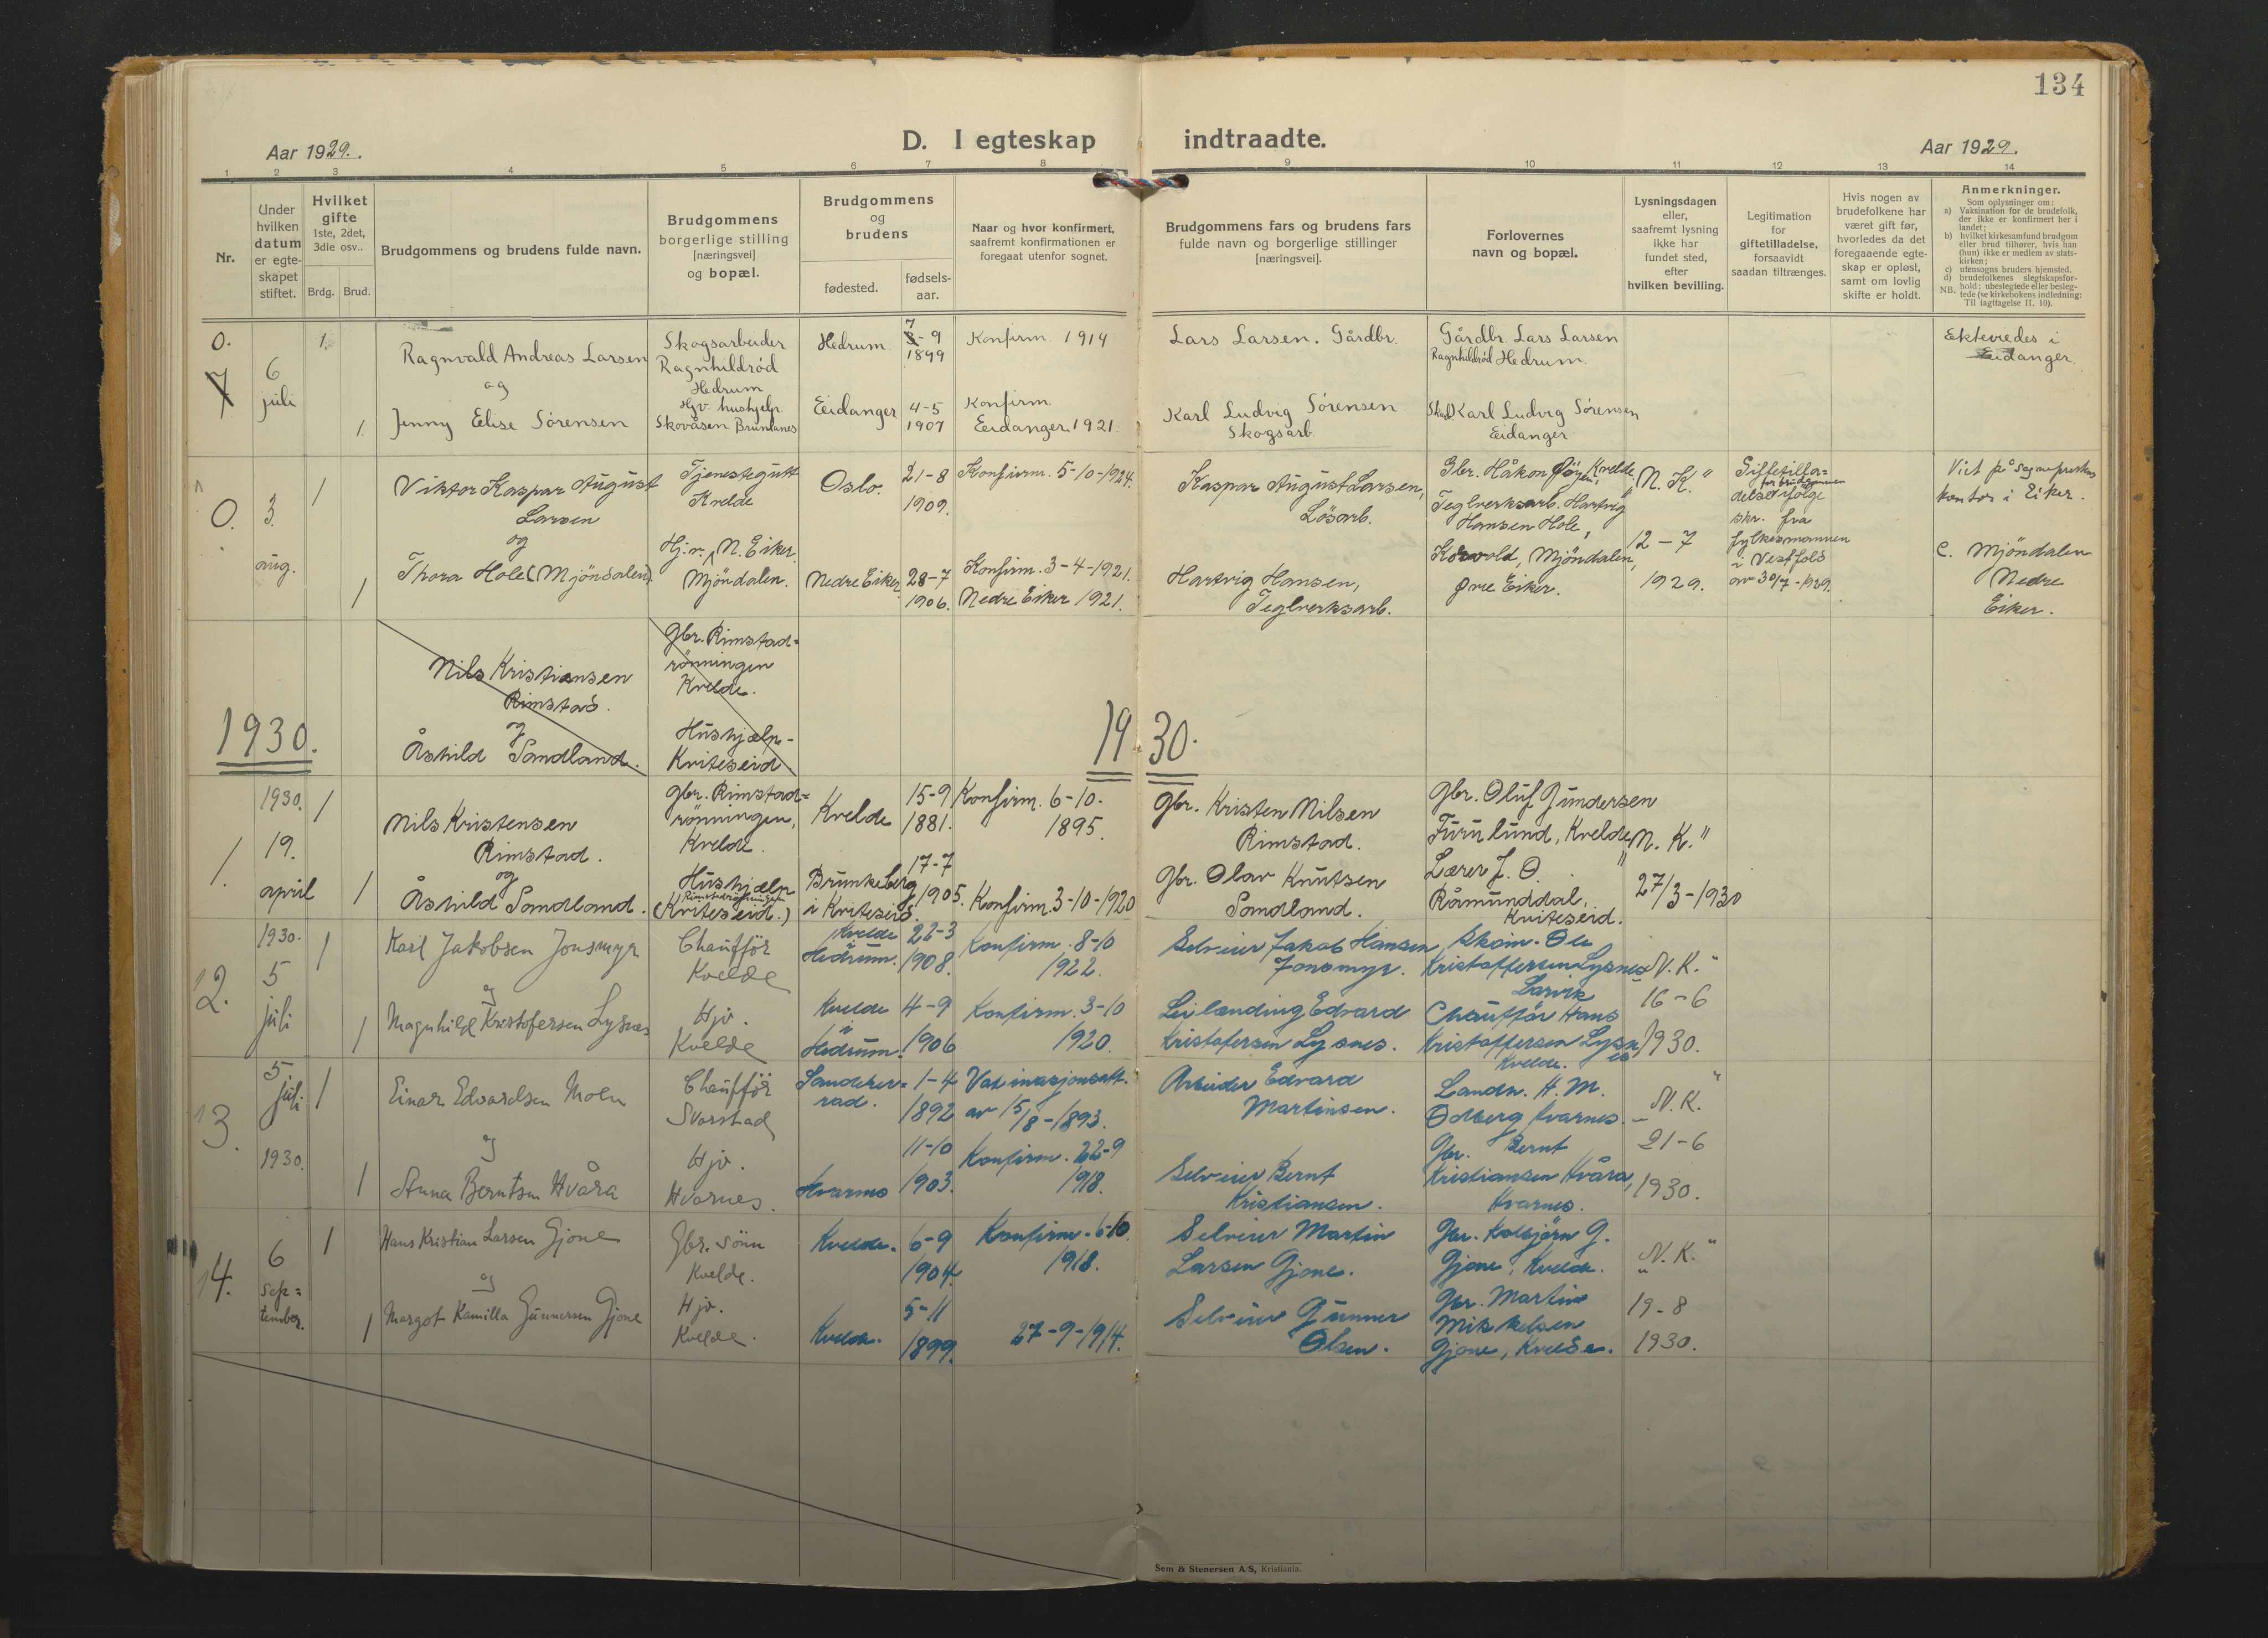 134
D. I egteskap indtraadte.
Aar 1929.
Aar 1929.
1 2 3 4 5 6 7 8 9 10 11 12 13 14
Nr.
Under
hvilken
datum
er egte-
skapet
stiftet.
Hvilket
gifte
1ste, 2det,
3die osv..
Brdg. Brud.
Brudgommens og brudens fulde navn.
Brudgommens
borgerlige stilling
[næringsvei]
og bopæl.
Brudgommens
og
brudens
fødested.
fødsels-
aar.
Naar og hvor konfirmert,
saafremt konfirmationen er
foregaat utenfor sognet.
Brudgommens fars og brudens fars
fulde navn og borgerlige stillinger
[næringsvei].
Forlovernes
navn og bopæl.
Lysningsdagen
eller,
saafremt lysning
ikke har
fundet sted,
efter
hvilken bevilling.
Legitimation
for
giftetilladelse,
forsaavidt
saadan tiltrænges.
Hvis nogen av
brudefolkene har
været gift før,
hvorledes da det
foregaaende egte-
skap er opløst,
samt om lovlig
skifte er holdt.
Anmerkninger.
Som oplysninger om:
a) Vaksination for de brudefolk,
der ikke er konfirmert her i
landet;
b) hvilket kirkesamfund brudgom
eller brud tilhører, hvis han
(hun) ikke er medlem av stats-
kirken;
c) utensogns bruders hjemsted.
d) brudefolkenes slegtskapsfor-
hold: ubeslegtede eller besleg-
NB. tede (se kirkebokens indledning:
Til iagttagelse II. 10).
0.
7
6
juli
1.
1.
Ragnvald Andreas Larsen
og
Jenny Elise Sörensen
Skogsarbeider
Ragnhildröd
Hedrum
Hjv. hushjelp
Skovåsen Brunlanes
Hedrum
Eidanger
7
9
1899
4-5
1907
Konfirm 1914
Konfirm
Eidanger 1921.
Lars Larsen. Gårdbr.
Karl Ludvig Sörensen
Skogsarb.
Gårdbr. Lars Larsen
Ragnhildröd Hedrum
Karl Ludvig Sörensen
Eidanger
Ektevиedes i
Eidanger
0.
3.
aug.
1
1
Viktor Kaspar August
Larsen
og
Thora Hole (Mjöndalen).
Tjenestegutt
Kvelde
Hj.v. N. Eiker.
Mjöndalen.
Oslo.
Nedre Eiker
21-8
1909.
28-7
1906.
Konfirm. 5-10-1924.
Konfirm. 3-4-1921.
Nedre Eiker 1921.
Kaspar August Larsen,
Lösarb.
Hartvig Hansen,
Teglverksarb.
Gbr. Håkon Kvelde.
Teglverksarb. Hartvig
Hansen Hole,
Mjöndalen,
Øvre Eiker.
"N. K."
12-7
1929.
Giftetilla-
for brudgommen
delse ifölge
skr. fra
fylkesmannen
i Vestfold
av 30/7-1929.
Viet på sogneprestens
kontor i Eiker.
c. Mjöndalen
Nedre
Eiker.
Nils Kristiansen
Rimstad.
og
Åshild Sandland.
Gbr. Rimstad-
rönningen
Kvelde.
Hushjælp-
Kviteseid
1930.
1930.
1930.
1.
19.
april
1
1
Nils Kristensen
Rimstad.
og
Åshild Sandland.
Gbr. Rimstad-
rönningen,
Kvelde.
Hushjælp
Rimstadrönningen
(Kviteseid.)
Kvelde
Brunkeberg
i Kviteseid.
15-9
1881.
17-7
1905.
Konfirm. 6-10-
1895.
Konfirm. 3-10-1920
Gbr. Kristen Nilsen
Rimstad.
Gbr. Olav Knutsen
Sandland.
Gbr. Oluf Gundersen
Furulund, Kvelde
Lærer J. O.
Råmunddal,
Kviteseid.
"N. K."
27/3-1930
1930.
2.
5
juli
1
1
Karl Jakobsen Jonsmyr
og
Magnhild Kristofersen Lysnes
Chaufför
Kvelde
Hjv.
Kvelde
Kvelde
Hedrum.
Kvelde
i
Hedrum.
22-3
1908.
4-9
1906
Konfirm. 8-10
1922.
Konfirm. 3-10
1920.
Selveier Jakob Hansen
Jonsmyr.
Leilænding Edvard
Kristofersen Lysnes.
Skom. Ole
Kristoffersen Lysnes
Larvik
Chauffør Hans
Kristoffersen Lysnes
Kvelde.
"N. K."
16-6
1930.
3.
5
juli
1930.
1
1
Einar Edvardsen Moen
og
Anna Berntsen Hvåra
Chaufför
Svarstad
Hjv.
Hvarnes.
Sandeher-
rad.
Hvarnes
1-4
1892
11-10
1903.
Vaksinasjonsatt.
av 15/8-1893.
Konfirm. 22-9
1918.
Arbeider Edvard
Martinsen.
Selveier Bernt
Kristiansen.
Landh. H. M.
Odberg Hvarnes.
Gbr. Bernt
Kristiansen Hvåra,
Hvarnes.
"N. K."
21-6
1930.
4.
6
sep-
tember.
1
1
Hans Kristian Larsen Gjone
og
Margot Kamilla Gunnersen Gjone
Gbr. sönn
Kvelde.
Hjv.
Kvelde.
Kvelde.
Kvelde.
6-9
1904.
5-11
1899.
Konfirm. 6-10.
1918.
27-9-1914.
Selveier Martin
Larsen Gjone.
Selveier Gunner
Olsen.
Gbr. Kolbjörn G.
Gjone, Kvelde.
Gbr. Martin
Mikkelsen
Gjone, Kvelde.
"N. K."
19-8
1930.
Sem & Stenersen A/S, Kristiania.